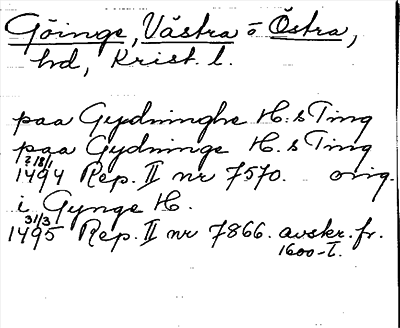 Göinge, Västra o Östra,
hd, Krist. l.
paa Gydninghe H:s Ting
paa Gydninge H.s Ting
1494 28/1 Rep. II nr 7570. orig.
i Gynge H.
1495 31/3 Rep. II nr 7866. avskr. fr.
1600-t.